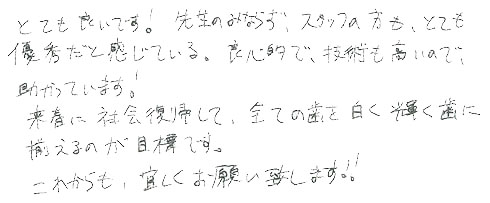 とても良いです! 先生のみならず、スタッフの方も、とても
優秀だと感じている。良心的で、技術も高いので、
助かっています!
来春に社会復帰して、全ての歯を白く輝く歯に
揃えるのが目標です。
これからも、宜しくお願い致します!!